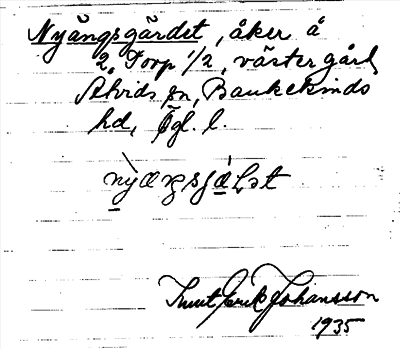 Nyängsgärdet, åker å
2, Torp 1/2, västergård
Alvids sn, Bankekinds
hd, Ögl. l.
Knut Erik Johansson
1935